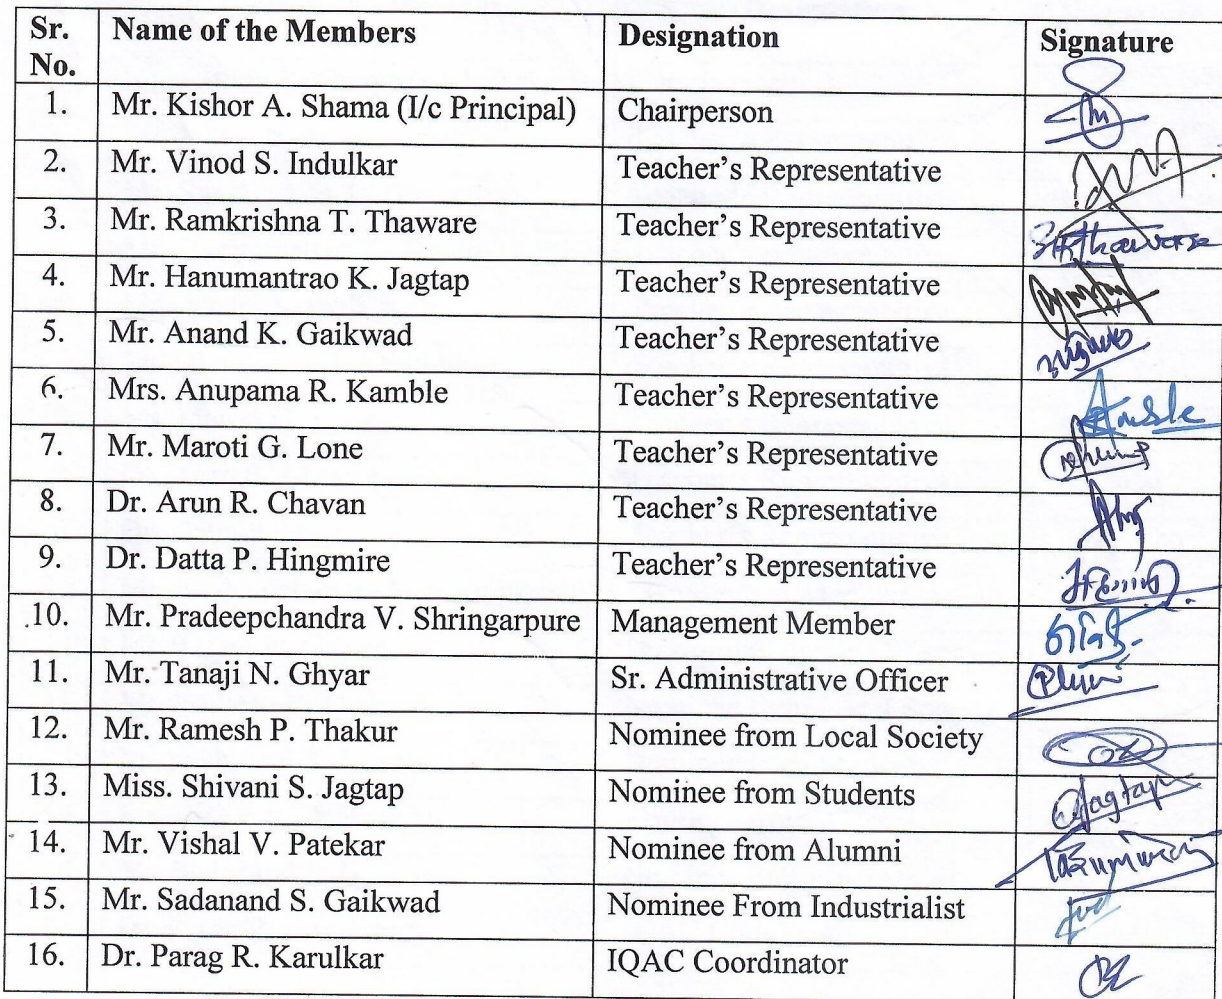 Sr. No. Name of the Members Designation Signature
1. Mr. Kishor A. Shama (I/c Principal) Chairperson
2. Mr. Vinod S. Indulkar Teacher's Representative
3. Mr. Ramkrishna T. Thaware Teacher's Representative
4. Mr. Hanumantrao K. Jagtap Teacher's Representative
5. Mr. Anand K. Gaikwad Teacher's Representative
6. Mrs. Anupama R. Kamble Teacher's Representative
7. Mr. Maroti G. Lone Teacher's Representative
8. Dr. Arun R. Chavan Teacher's Representative
9. Dr. Datta P. Hingmire Teacher's Representative
10. Mr. Pradeepchandra V. Shringarpure Management Member
11. Mr. Tanaji N. Ghyar Sr. Administrative Officer
12. Mr. Ramesh P. Thakur Nominee from Local Society
13. Miss. Shivani S. Jagtap Nominee from Students Jagtap
14. Mr. Vishal V. Patekar Nominee from Alumni
15. Mr. Sadanand S. Gaikwad Nominee From Industrialist
16. Dr. Parag R. Karulkar IQAC Coordinator